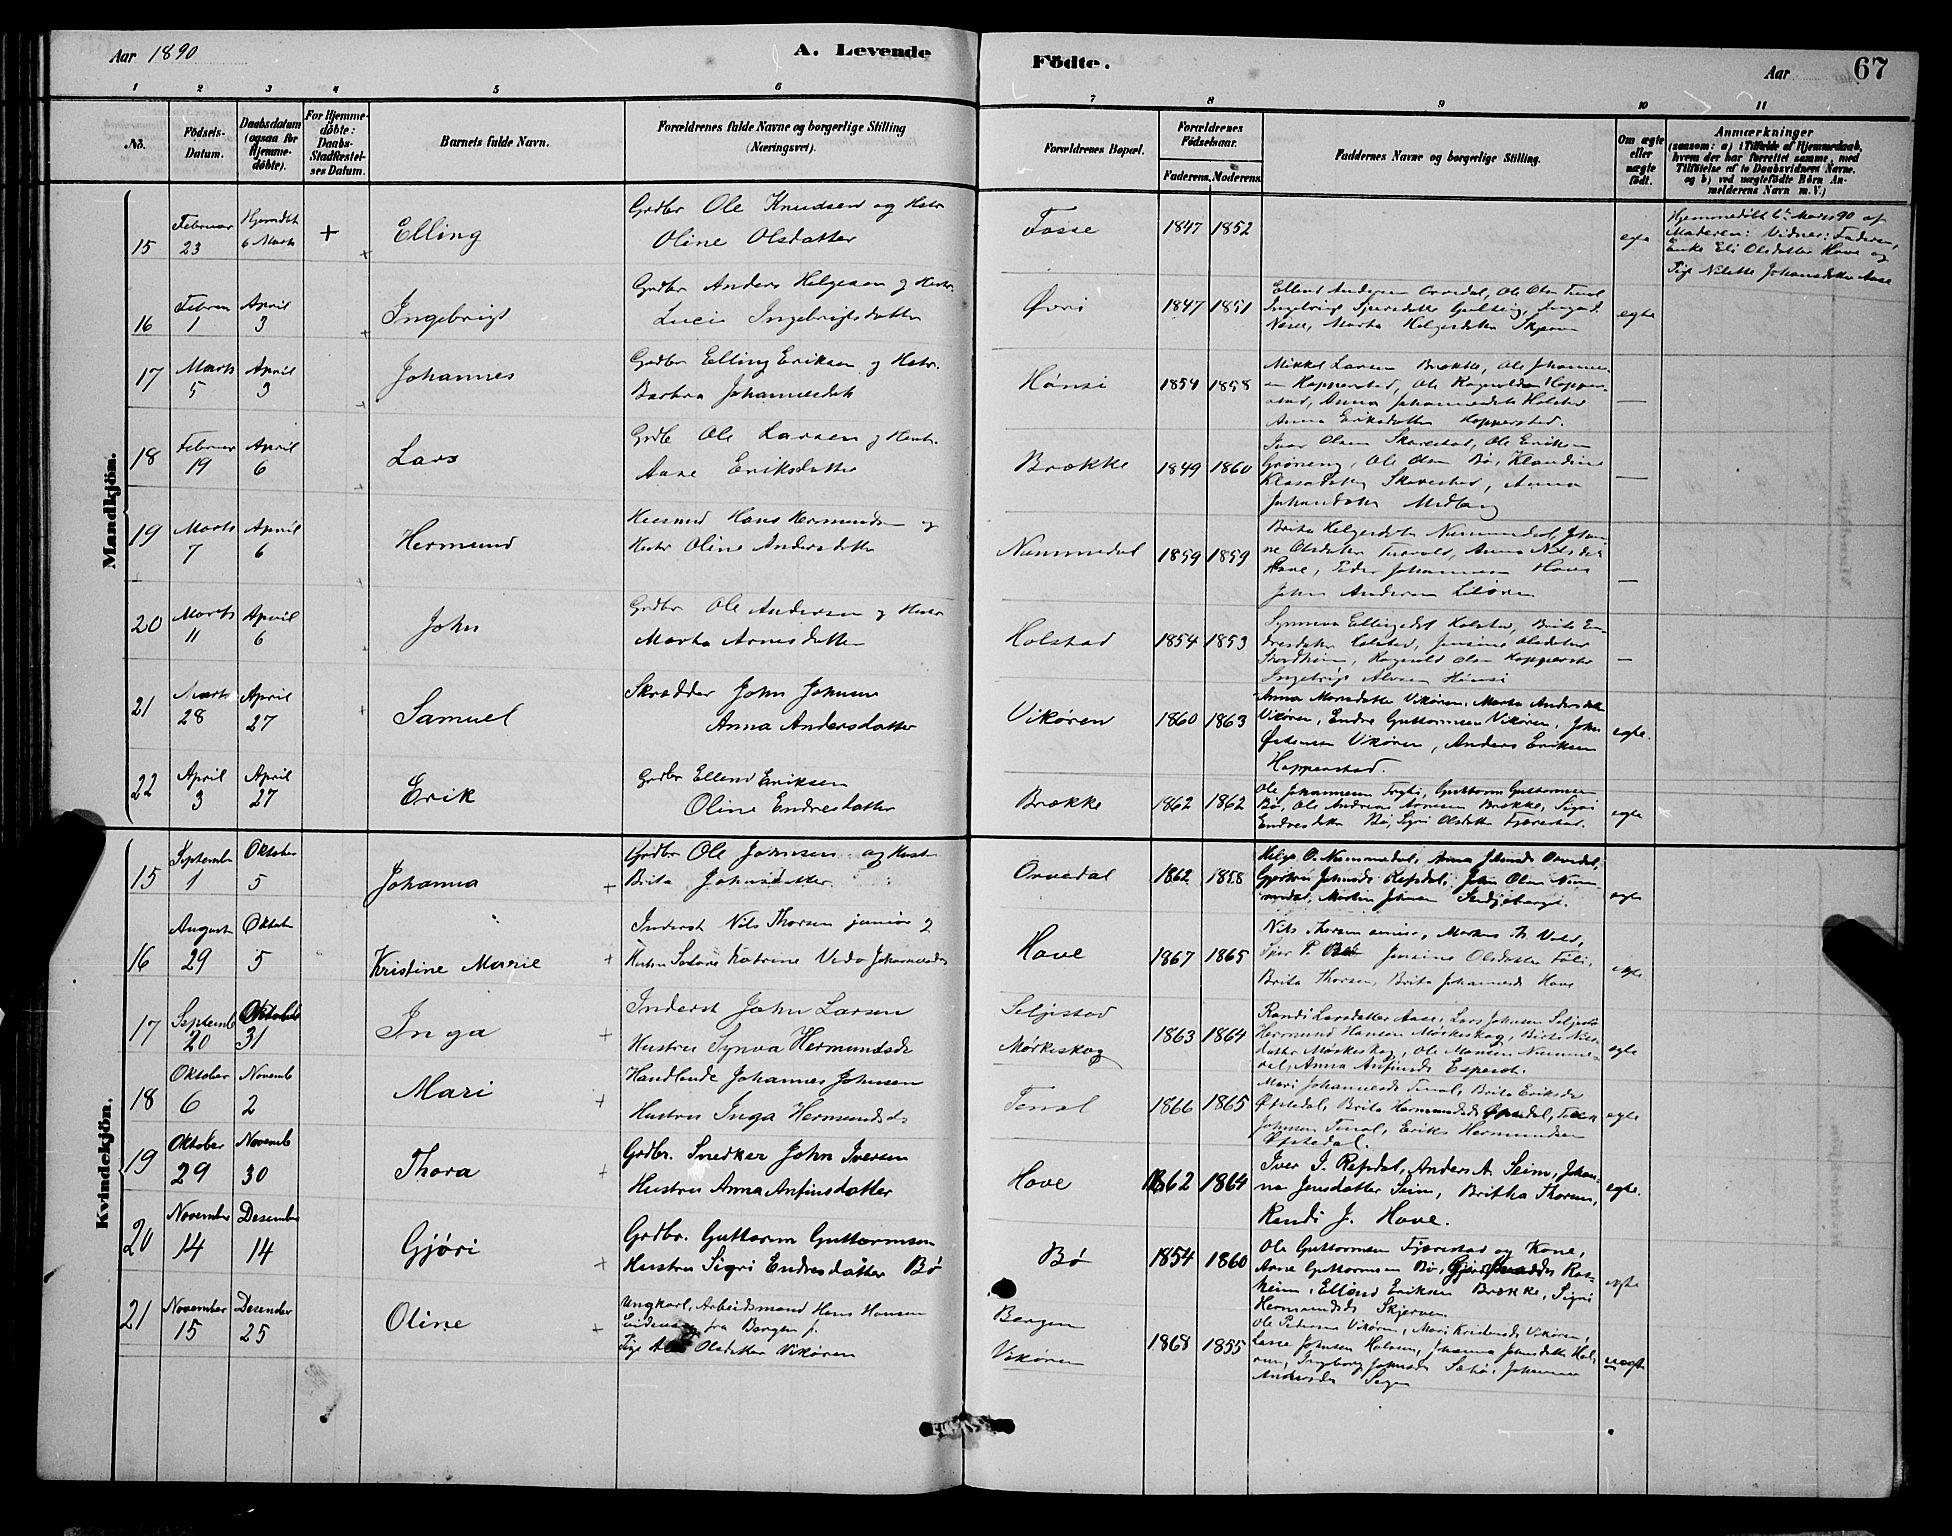 Aar 1890
A. Levende
Födte.
Aar
67
1 2 3 4 5 6 7 8 9 10 11
No.
Födsels-Datum.
Daabsdatum (ogsaa for Hjemmedöbte).
For Hjemmedöbte: Daabs-Stadfæstelses Datum.
Barnets fulde Navn.
Forældrenes fulde Navne og borgerlige Stilling (Næringsvei).
Forældrenes Bopæl.
Forældrenes Födselsaar.
Faderens. Moderens.
Faddernes Navne og borgerlige Stilling.
Om ægte eller uægte födt.
Anmærkninger
(saasom: a) i Tilfælde af Hjemmedaab, hvem der har forrettet samme, med Tilföielse af to Daabsvidners Navne. og b) ved uægtefödte Börn Anmelderens Navn m. V.)
Mandkjön.
15 Februar 23 Hjemdbt 6 Marts + Elling
Grdbr Ole Knudsen og Hstr
Oline Olsdatter
Fosse 1847 1852 egte
Hjemmedöbt 6te Marts 90 af
Moderen: Vidner: Faderen,
Enke Eli Olsdatter Hove og
Pige Nilette Johansdatter Aase
16 Februar 1 April 3 Ingebrigt
Grdbr Anders Helgesen og Hustr
Lucie Ingebrigtsdatter
Øvri 1847 1851
Ellend Andersen Orvedal, Ole Olsen Tenol
Nese, Marta Helgesdatter Skjerven
egte
17 Marts 5 April 3 Johannes
Grdbr Elling Eriksen og Hstr.
Barbra Johannesdatt
Hønsi 1854 1858
Mikkel Larsen Brække, Ole Johannes-
en Hopperstad, Ole Ragnvaldsen Hopper-
stad, Anna Johannesdt Holstad
Anna Eriksdatter Hopperstad. —
18 Februar 19 April 6 Lars
Grdb Ole Larsen og Hustr.
Aase Eriksdatter
Brække 1849 1860
Ivar Olsen Skorestad, Ole Eriksen
Grøneng, Ole Olsen Bø, Klandine
Klasdatter Skorestad, Anna
Johansdatter Midlang —
19 Marts 7 April 6 Hermund
Husmd Hans Hermundsen og
Hustr Oline Andersdatter
Nummedal 1859 1859
Brita Helgesdt Nummedal, Johan-
ne Olsdatter Turvold, Anna Nilsdat
Hove, Peder Johannesen Hove
John Andersen Liløren —
20 Marts 11 April 6 John
Grdbr Ole Andersen og Hustr
Marta Arnesdatter
Holstad 1854 1853
Synneva Ellingsdt Holstad, Brita En-
dresdatter Holstad, Jensine Olsdatter
Stordheim, Ragnvald Olsen Hopperstad
Ingebrigt Alvsen Hønsi —
21 Marts 28 April 27 Samuel
Skrædder John Johnsen
Anna Andersdatter
Vikøren 1860 1863
Anna Monsdatter Vikøren, Marta Andersdatter
Vikøren, Endre Guttormsen Vikøren, John
Østensen Vikøren, Anders Eriksen
Hopperstad. egte.
22 April 3 April 27 Erik
Grdbr Ellend Eriksen
Oline Endresdatter
Brække 1862 1862
Ole Johannesen Tryti, Guttorm Guttormsen
Bø, Ole Andreas Arnesen Brække, Sigri
Endresdatter Bø, Sigri Olsdatter Fjærestad. egte
Kvindekjön.
15 September 1 Oktober 5 Johanna
Grdbr Ole Johnsen og Hust
Brita Johnsdatter
Orvedal 1862 1858
Helge O. Nummedal, Anna Johnsd. Orvedal,
Gjertru Johnsd. Refsdal, John Olsen Num-
medal, Morten Johnsen egte
16 August 29 Oktober 5 Kristine Marie
Inderst Nils Thorsen junior og
Hustru Katrine Johannesd.
Hove 1867 1865
Nils Thorsen senior, Markus Th. Vold,
Sjur P. Bø Jensine Olsdatter Føli,
Brita Thorsen, Brita Johannesd. Hove egte
17 Septemb 20 Oktober 31 Inga
Inderst John Larsen
Hustru Synva Hermundsd.
Seljestad
Mørkeskog
1863 1864
Randi Larsdatter Aase, Lars Johnsen Seljestad
Hermund Hansen Mørkeskog, Brite Nils-
datter Mørkeskog, Ole Monsen Numme-
dal, Anna Anfinsd. Espeset. egte
18 Oktober 6 Novemb 2 Mari
Handlende Johannes Johnsen
Hustru Inga Hermundsd.
Tenol 1866 1865
Mari Johannesd. Tenol, Brita Eriksd.
Øfstedal, Brita Hermundsd. Øfstedal,
Johnsen Tenol, Eriks Hermundsen
Øfstedal. egte
19 Oktober 29 Novemb 30 Thora
Grdbr. Snedker John Iversen
Hustru Anna Anfinsdatter
Hove 1862 1864
Iver J. Refsdal, Anders A. Seim, Johan-
na Jensdatter Seim, Britha Thorsen,
Randi J. Hove. egte.
20 November 14 Desember 14 Gjøri
Grdbr. Guttorm Guttormsen
Hustru Sigri Endresdatter Bø
Bø 1854 1860
Ole Guttormsen Fjærestad og Kone,
Aase Guttormsen Bø,
heim, Ellend Eriksen Brække, Sigri
Hermundsd. Skjerven egte
21 November 15 Desember 25 Oline
Ungkarl, Arbeidsmand Hans Hansen
fra Bergen f.
Pige Olsdatter Vikøren
Bergen
Vikøren
1868 1855
Ole Petersen Vikøren, Mari Kristensd. Vikøren,
Lasse Johnsen Holsen, Johanna Johnsdatter Hol-
sen, Ingborg Johnsd. Sæbø, Johannes
Andersd. uægte